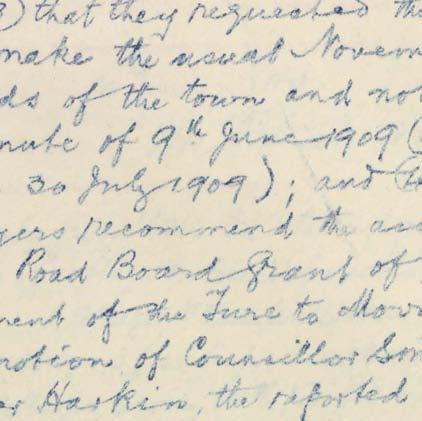 3) that they requested the
make the usual Novem
ds of the town and not
nute of 9th June 1909 (
30 July 1909); and
yers recommend the
Road Board Grant of
ment of the Ture to Mov
motion of Councillor
er Harkin, the reported